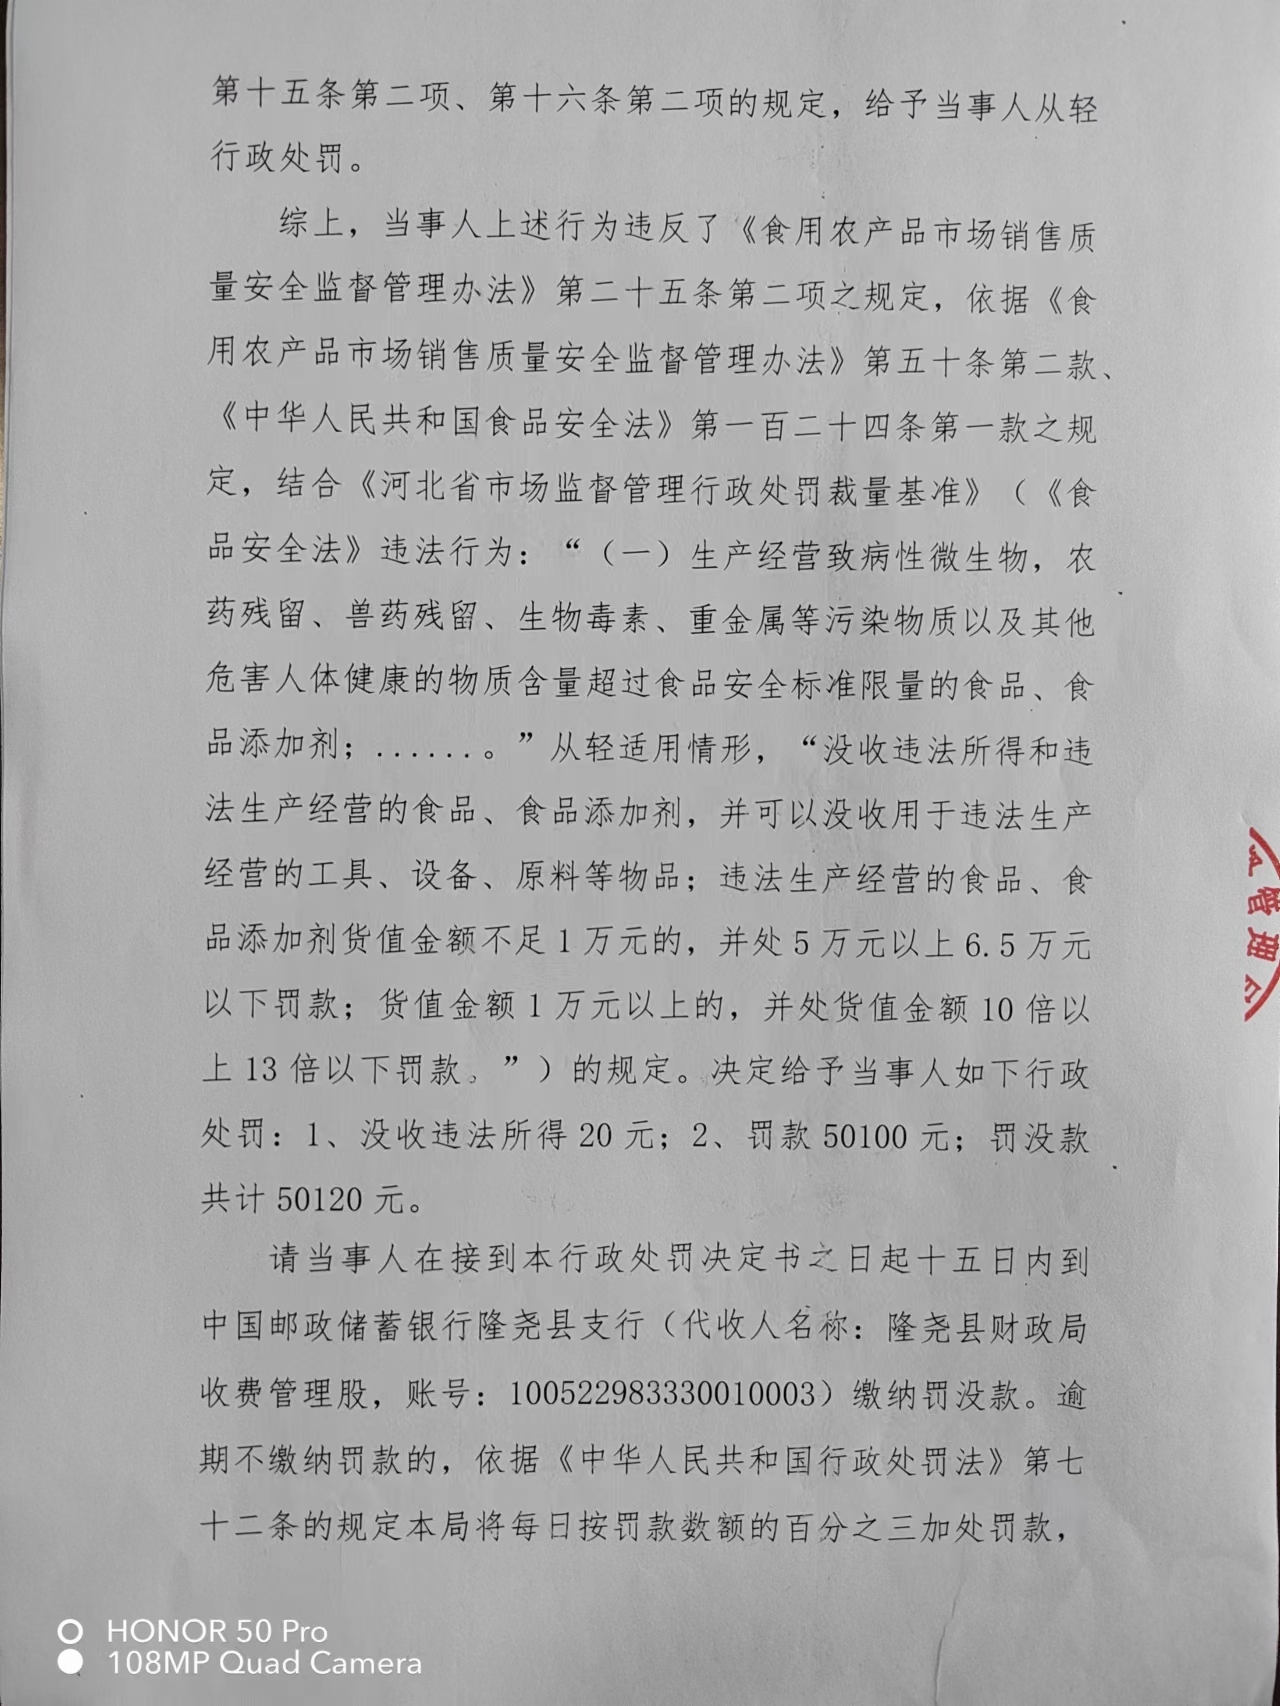 第十五条第二项、第十六条第二项的规定，给予当事人从轻
行政处罚。
综上，当事人上述行为违反了《食用农产品市场销售质
量安全监督管理办法》第二十五条第二项之规定，依据《食
用农产品市场销售质量安全监督管理办法》第五十条第二款、
《中华人民共和国食品安全法》第一百二十四条第一款之规
定，结合《河北省市场监督管理行政处罚裁量基准》（《食
品安全法》违法行为：“（一）生产经营致病性微生物，农
药残留、兽药残留、生物毒素、重金属等污染物质以及其他
危害人体健康的物质含量超过食品安全标准限量的食品、食
品添加剂；......。”从轻适用情形，“没收违法所得和违
法生产经营的食品、食品添加剂，并可以没收用于违法生产
经营的工具、设备、原料等物品；违法生产经营的食品、食
品添加剂货值金额不足1万元的，并处5万元以上6.5万元
以下罚款；货值金额1万元以上的，并处货值金额10倍以
上13倍以下罚款。”）的规定。决定给予当事人如下行政
处罚：1、没收违法所得20元；2、罚款50100元；罚没款
共计50120元。
请当事人在接到本行政处罚决定书之日起十五日内到
中国邮政储蓄银行隆尧县支行（代收人名称：隆尧县财政局
收费管理股，账号：100522983330010003）缴纳罚没款。逾
期不缴纳罚款的，依据《中华人民共和国行政处罚法》第七
十二条的规定本局将每日按罚款数额的百分之三加处罚款，
管理
HONOR 50 Pro
108MP Quad Camera